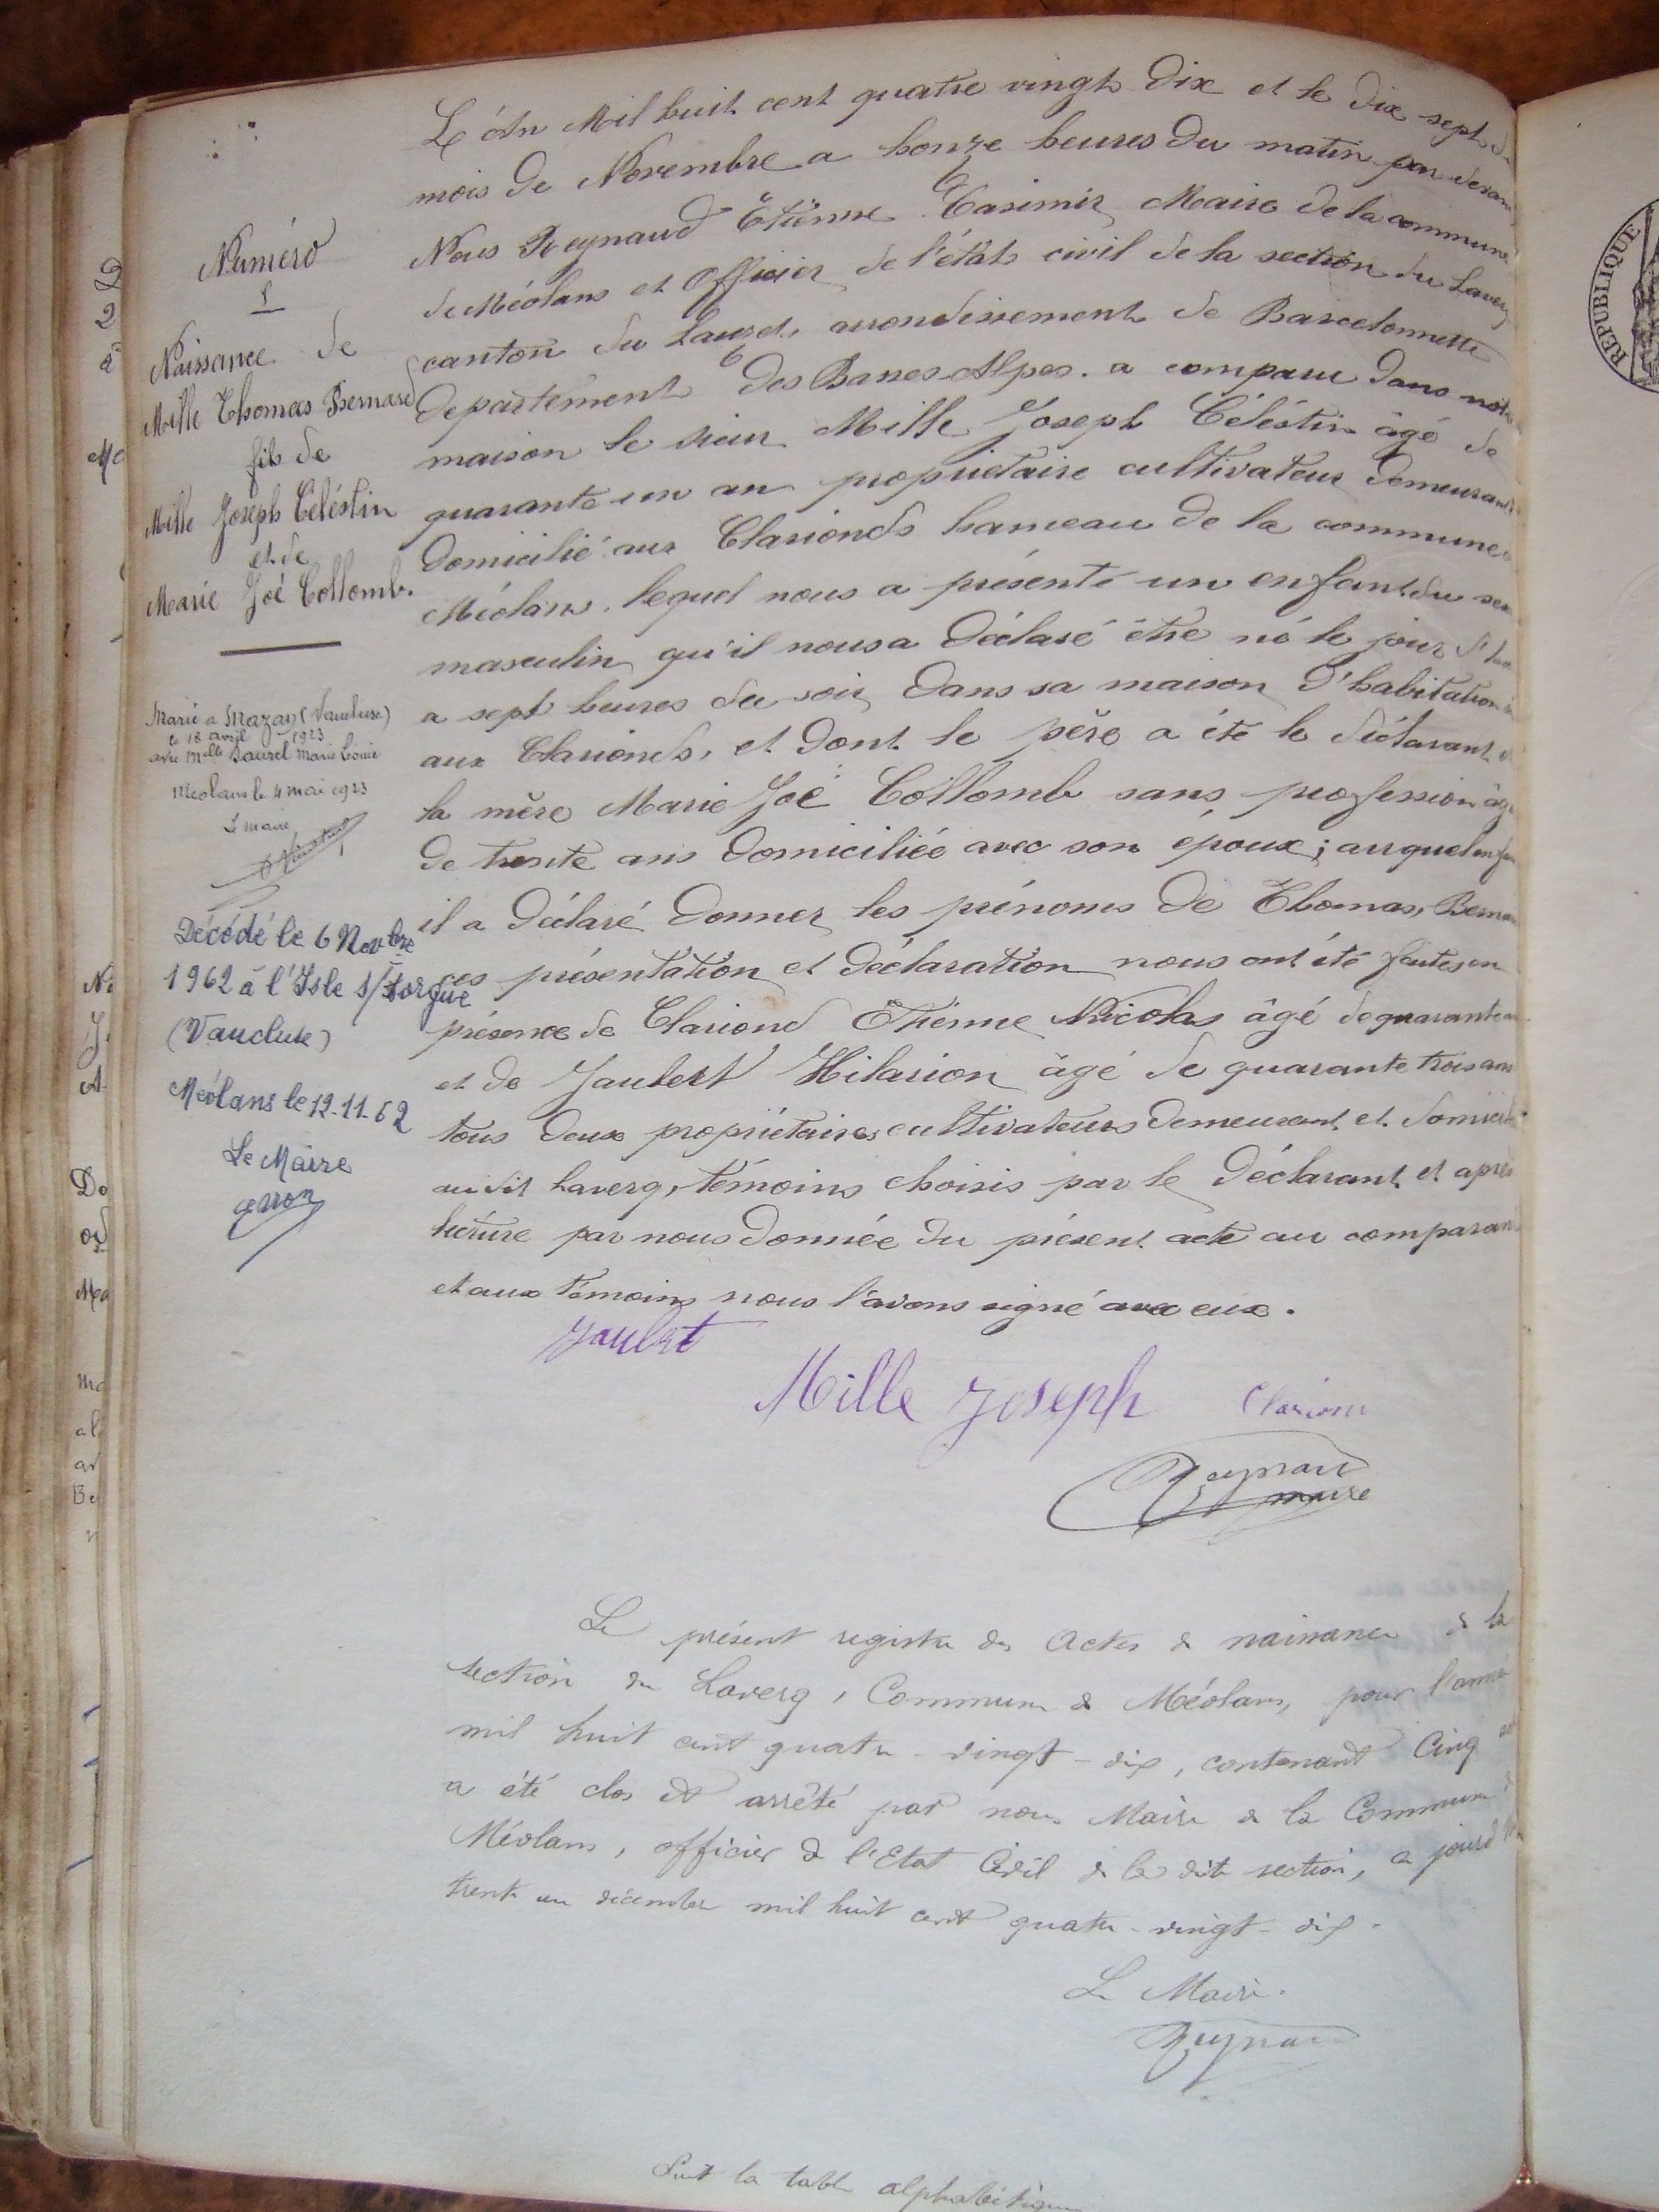 Numéro
5
Naissance de
Mille Thomas Bernard
fils de
Mille Joseph Céléstin
et de
Marie Joé Collomb.
Marié a Mazan (Vaucluse)
le 18 avril 1923
avec Mlle Saurel Marie Léonie
Méolans le 4 mai 1923
Le maire
Décédé le 6 Novbre
1962 à l'Isle s/Sorgue
(Vaucluse)
Méolans le 12-11-62
Le Maire
L'An Mil huit cent quatre vingt Dix et le dix sept du
mois de Novembre a honze heures du matin par devant
Nous Reynaud Étienne Casimir Maire de la commune
de Méolans et Officier de l'état civil de la section du Laverq
canton du Lauzet, arrondissement de Barcelonnette
département des Basses-Alpes. a comparu dans notre
maison le sieur Mille Joseph Céléstin âgé de
quarante un an propriétaire cultivateur demeurant
domicilié aux Clarionds hameau de la commune
Méolans. lequel nous a présenté un enfant du sexe
masculin qu'il nous a déclaré être né le jour d'hier
a sept heures du soir dans sa maison d'habitation
aux Clarionds, et dont le père a été le déclarant et
la mère Marie Joé Collomb sans profession âgé
de trente ans domiciliée avec son époux; auquel enfan
il a déclaré donner les prénoms de Thomas, Bernar
ces présentation et déclaration nous ont été faites en
présence de Clariond Étienne Nicolas âgé de quarante
et de Jaubert Hilarion âgé de quarante trois ans
tous deux propriétaires cultivateurs demeurant et domicili
au dit Laverq, témoins choisis par le déclarant et après
lécture par nous donnée du présent acte au comparant
et aux témoins nous l'avons signé avec eux.
Jaubert
Mille Joseph Clariond
Reynaud
maire
Le présent registre des Actes de naissance de la
section du Laverq, Commune de Méolans, pour l'année
mil huit cent quatre-vingt-dix, contenant Cinq
a été clos et arrêté par nous Maire de la Commune
Méolans, officier de l'Etat Civil de la dite section, ce jourd'hui
trente un décembre mil huit cent quatre-vingt-dix.
Le Maire.
Reynaud
Suit la table alphabétique
REPUBLIQUE